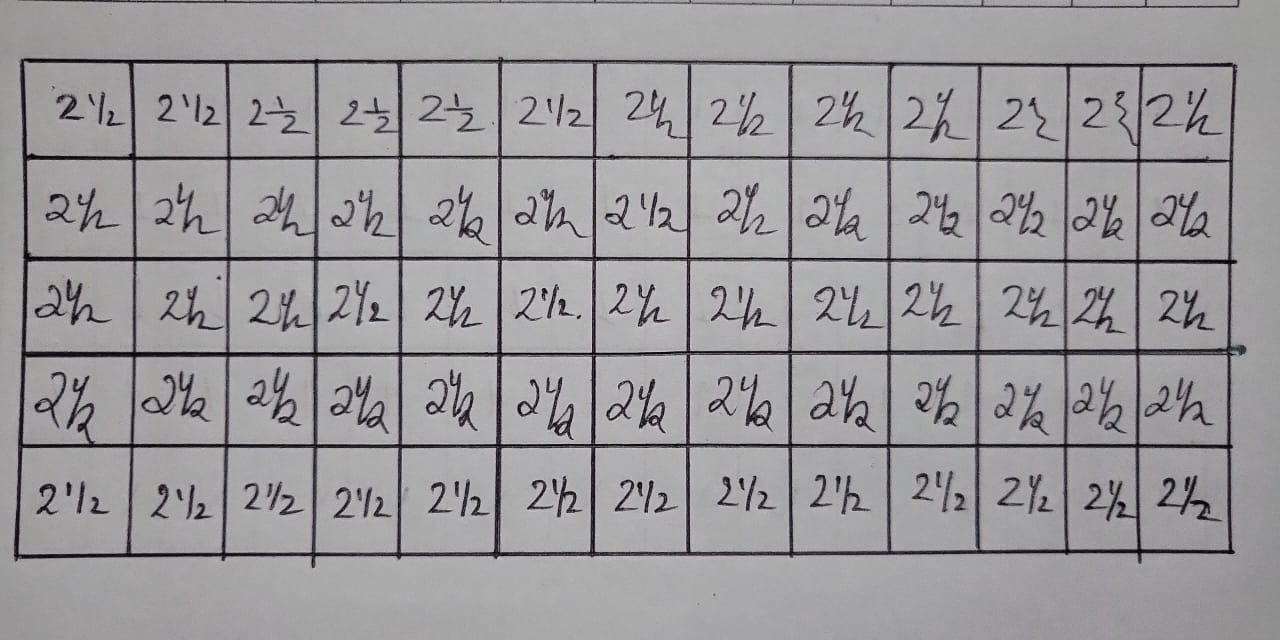 2 1/2 2 1/2 2 1/2 2 1/2 2 1/2 2 1/2 2 1/2 2 1/2 2 1/2 2 1/2 2 1/2 2 1/2 2 1/2
2 1/2 2 1/2 2 1/2 2 1/2 2 1/2 2 1/2 2 1/2 2 1/2 2 1/2 2 1/2 2 1/2 2 1/2 2 1/2
2 1/2 2 1/2 2 1/2 2 1/2 2 1/2 2 1/2. 2 1/2 2 1/2 2 1/2 2 1/2 2 1/2 2 1/2 2 1/2
2 1/2 2 1/2 2 1/2 2 1/2 2 1/2 2 1/2 2 1/2 2 1/2 2 1/2 2 1/2 2 1/2 2 1/2 2 1/2
2 1/2 2 1/2 2 1/2 2 1/2 2 1/2 2 1/2 2 1/2 2 1/2 2 1/2 2 1/2 2 1/2 2 1/2 2 1/2